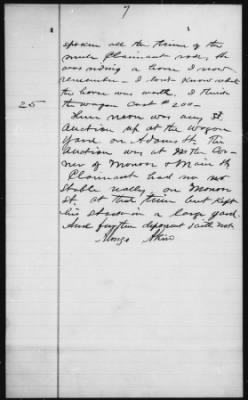 7
spoken all the time of the
mule Claimant rode, he
was riding a horse I now
remember – I don't know what
the horse was worth, I think
the wagon cost $200 –
25
There never was any
Auction up at the Wagon
Yard on Adams St. The
Auction was at the Cor-
ner of Monroe & Main St
Claimant had no
Stable really, on Monroe
St. at that time but kept
his stock in a large yard.
And further deponent saith not.